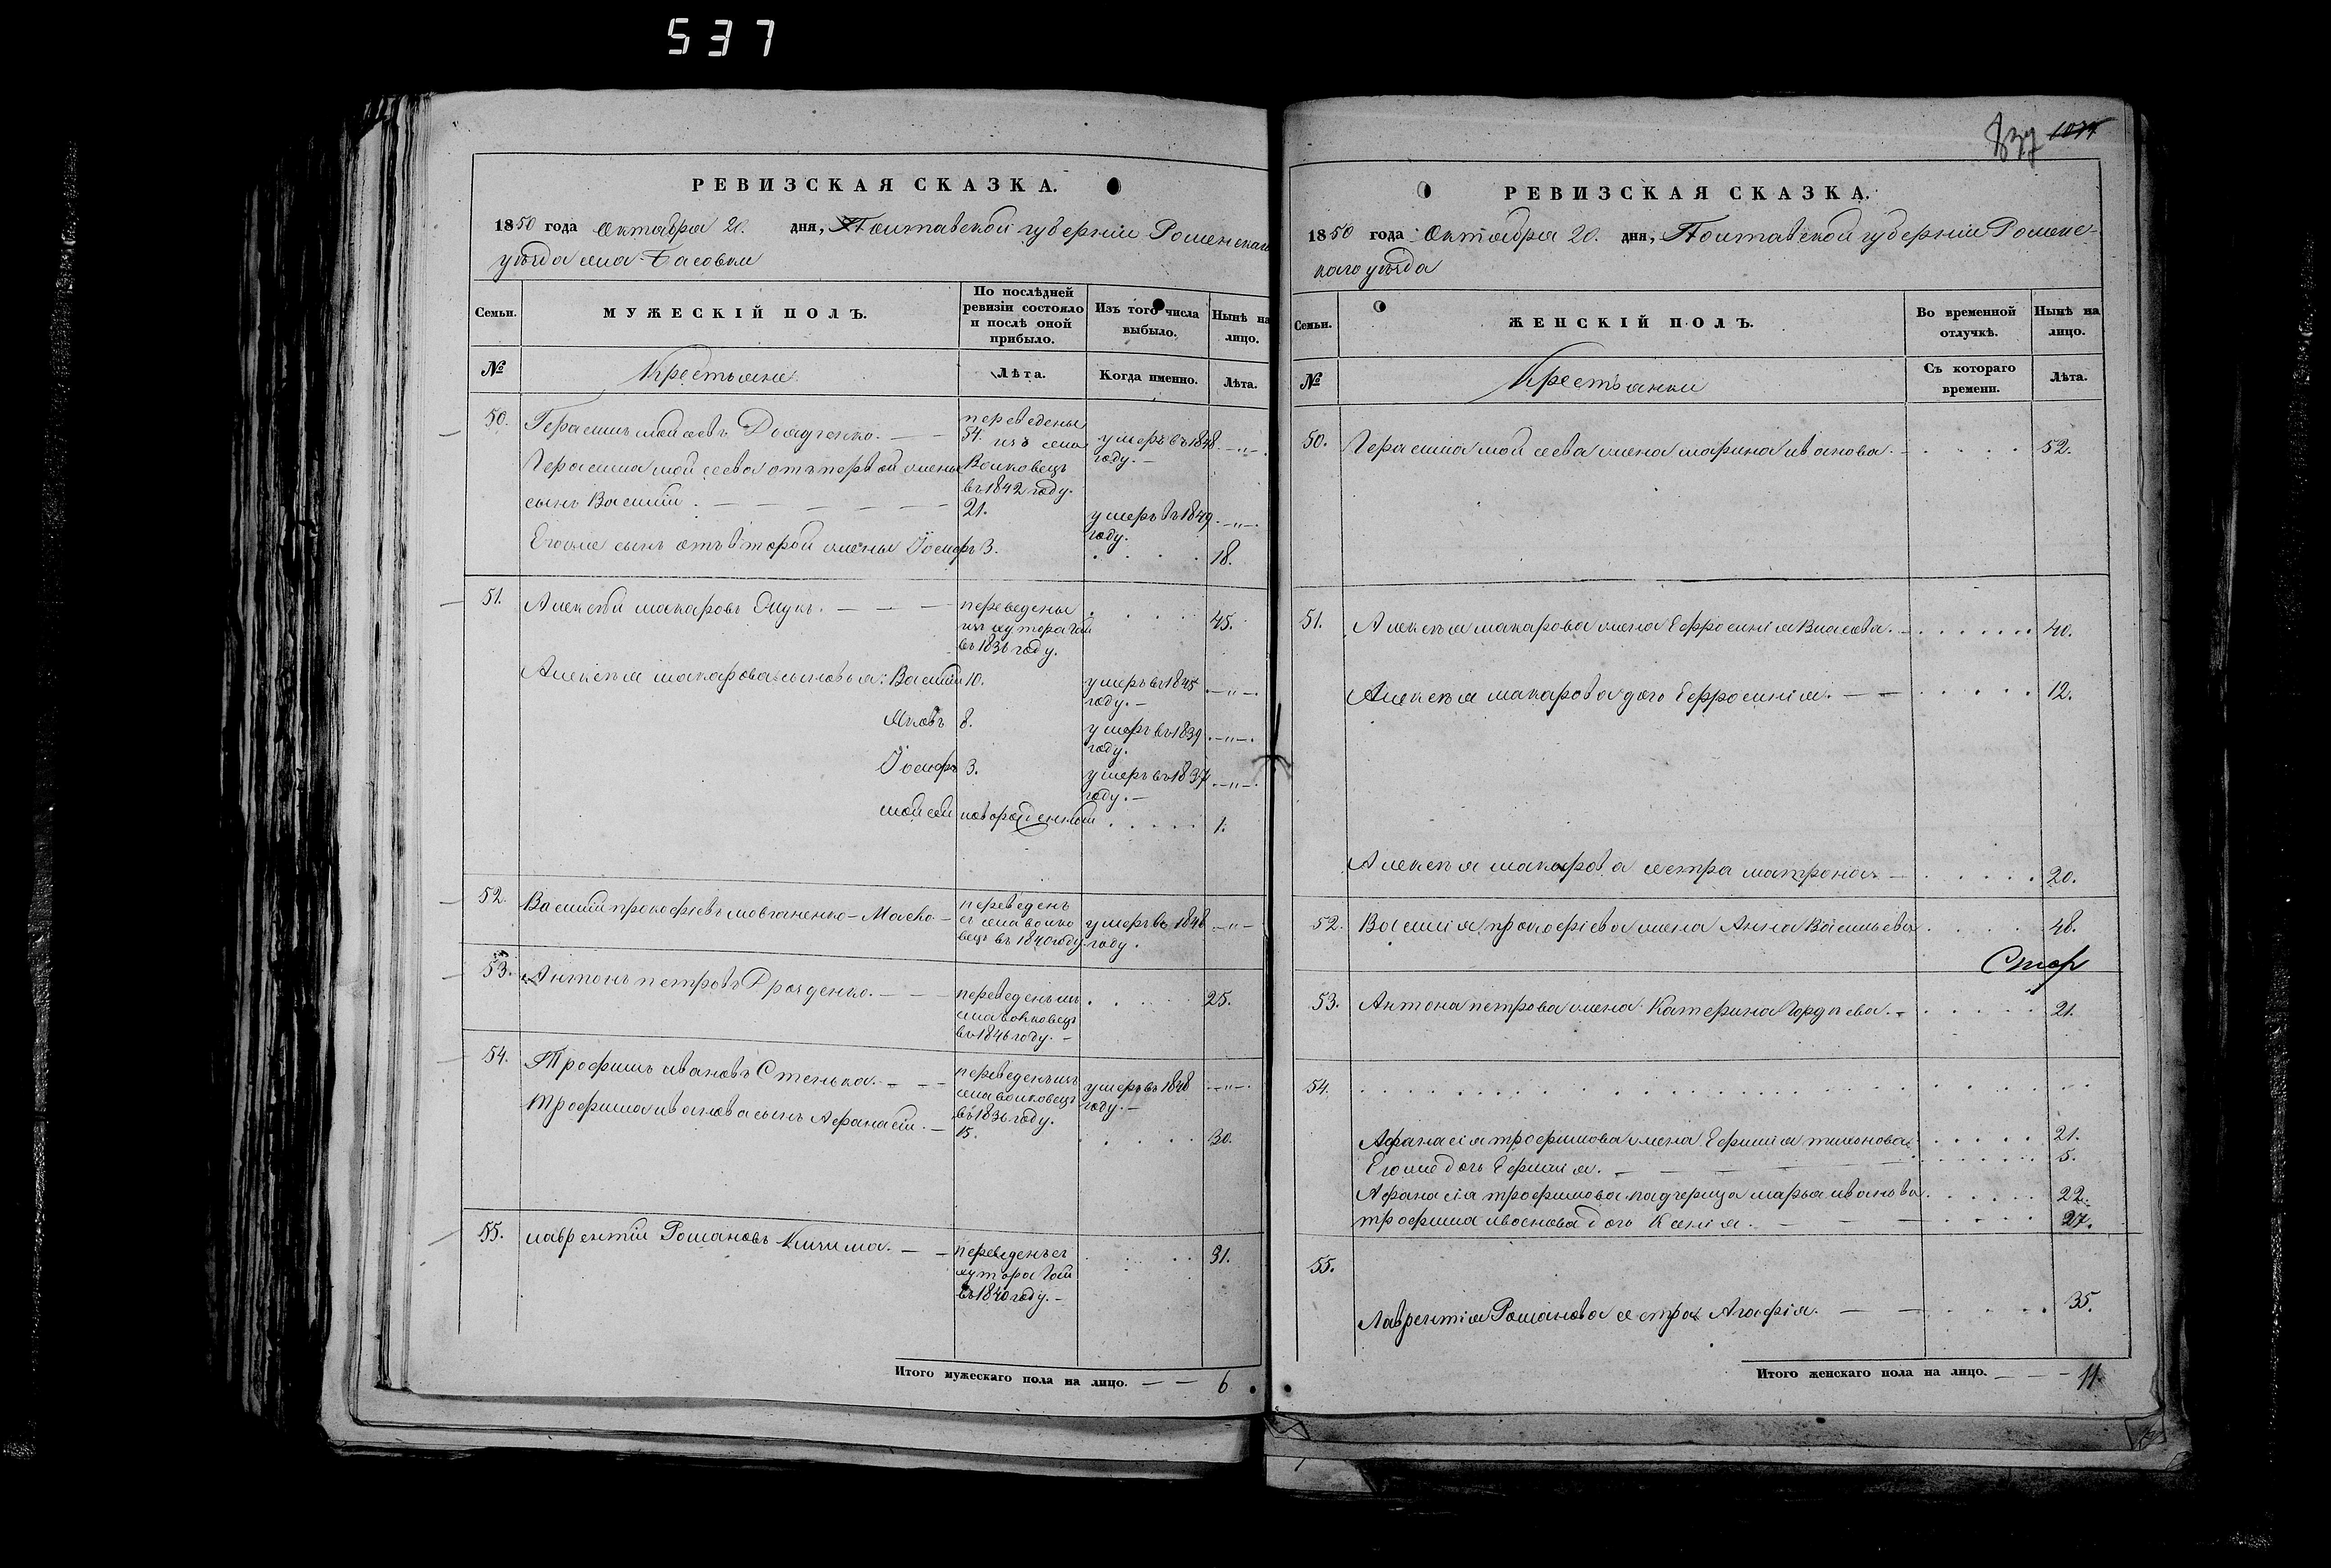 537
РЕВИЗСКАЯ СКАЗКА.
1850 года Октября 20. дня, Полтавской губерніи Роменскаго
уѣзда села Басовки
Семьи.
МУЖЕСКІЙ ПОЛЪ.
По послѣдней
ревизіи состояло
и послѣ оной
прибыло.
Изъ того числа
выбыло.
Нынѣ на
лицо.
№
Крестьяне
Лѣта.
Когда именно.
Лѣта.
50. Герасимъ Мойсеевъ
переведены
54. изъ села
умеръ въ 1848
году. —
Герасима Мойсеева отъ первой жены
Волковецъ
въ 1842 году.
сынъ Василій 21.
умеръ въ 1849
году.
Егоже сынъ отъ второй жены Іосифъ 3. 18.
51. Алексѣй Макаровъ
переведены
изъ хутора Гай
въ 1836 году.
45.
Алексѣя Макарова сыновья: Василій 10.
умеръ въ 1845
году. —
Яковъ 8.
умеръ въ 1839
году.
Іосифъ 3.
умеръ въ 1837
году. —
Мойсей новорожденный 1.
52. Василій Прокофіевъ Мовчаненко
переведенъ
съ села Волко
вецъ въ 1840 году.
умеръ въ 1848
году.
53. Антонъ Петровъ
переведенъ изъ
села Волковецъ
въ 1846 году. —
25.
54. Трофимъ Ивановъ Стенька. — — —
переведенъ изъ
села Волковецъ
въ 1836 году.
умеръ въ 1848
году. —
Трофима Иванова сынъ Афанасій. — 15. 30.
55. Лаврентій Романовъ
переведенъ съ
хутора Гай
въ 1840 году. —
31.
Итого мужескаго пола на лицо. — — 6
837 1074
РЕВИЗСКАЯ СКАЗКА.
1850 года Октября 20. дня, Полтавской губерніи Роменс-
каго уѣзда
Семьи.
ЖЕНСКІЙ ПОЛЪ.
Во временной
отлучкѣ.
Нынѣ на
лицо.
№
Крестьянки
Съ котораго
времени.
Лѣта.
50. Герасима Мойсеева жена Марина Иванова. 52.
51. Алексѣя Макарова жена Ефросинія Власова. 40.
Алексѣя Макарова дочь Ефросинія. — — 12.
Алексѣя Макарова сестра Матрона — 20.
52. Василія Прокофіева жена Анна Васильева 48.
53. Антона Петрова жена Катерина Гордѣева. 21.
54.
Афанасія Трофимова жена Ефимія Тихонова 21.
Егоже дочь Ефимія. 5.
Афанасія Трофимова падчерица Марья Иванова. 22.
Трофима Иванова дочь Ксенія. 27.
55.
Лаврентія Романова сестра Агафія. 35.
Итого женскаго пола на лицо. — — — 11.